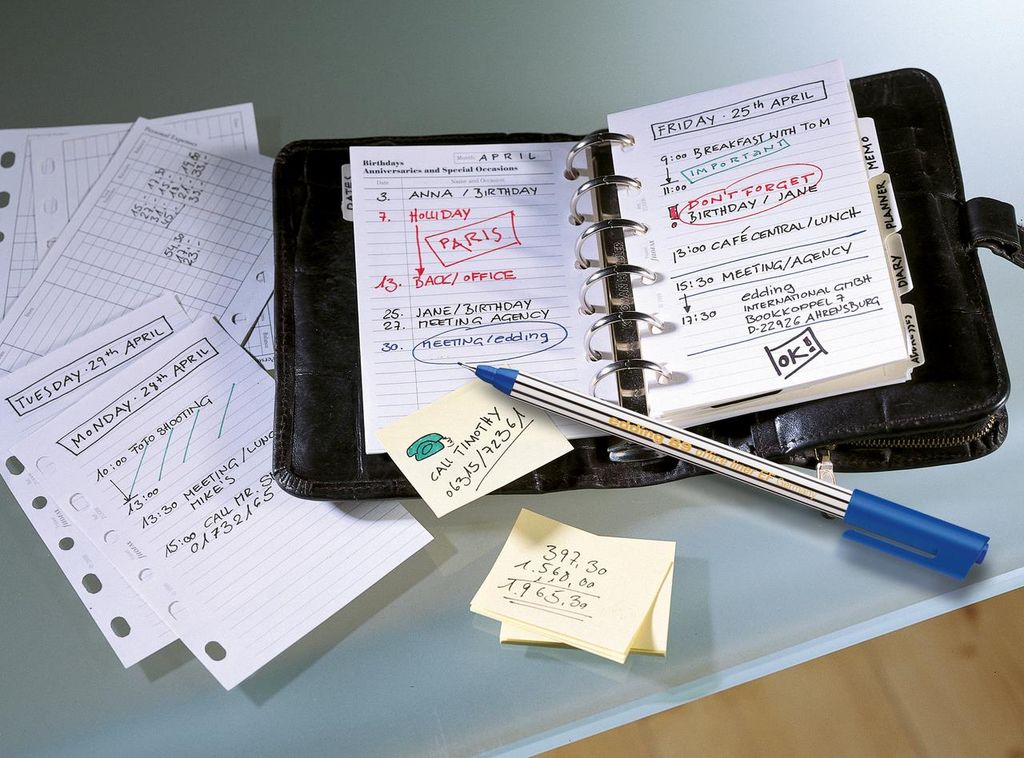 Personal Expenses
TUESDAY · 29th APRIL
MONDAY · 28th APRIL
10:00 FOTO SHOOTING
13:00
13:30 MEETING / LUNCH
MIKE'S
15:00 CALL MR. S
01732165
DATES
Birthdays Month: APRIL
Anniversaries and Special Occasions
Date Name and Occasion
3. ANNA / BIRTHDAY
7. HOLLIDAY
PARIS
13. BACK/OFFICE
25. JANE/BIRTHDAY
27. MEETING AGENCY
30. MEETING/edding
FRIDAY · 25th APRIL
9:00 BREAKFAST WITH TOM
IMPORTANT
11:00
DON'T FORGET
BIRTHDAY / JANE
13:00 CAFÉ CENTRAL/LUNCH
15:30 MEETING/AGENCY
edding
17:30 INTERNATIONAL GMBH
BOOKKOPPEL 7
D-22926 AHRENSBURG
OK!
MEMO
PLANNER
DIARY
ADDRESSES
CALL TIMOTHY
06315/72361
edding 88 office liner EF Germany
397,30
1.568,00
1.965,30